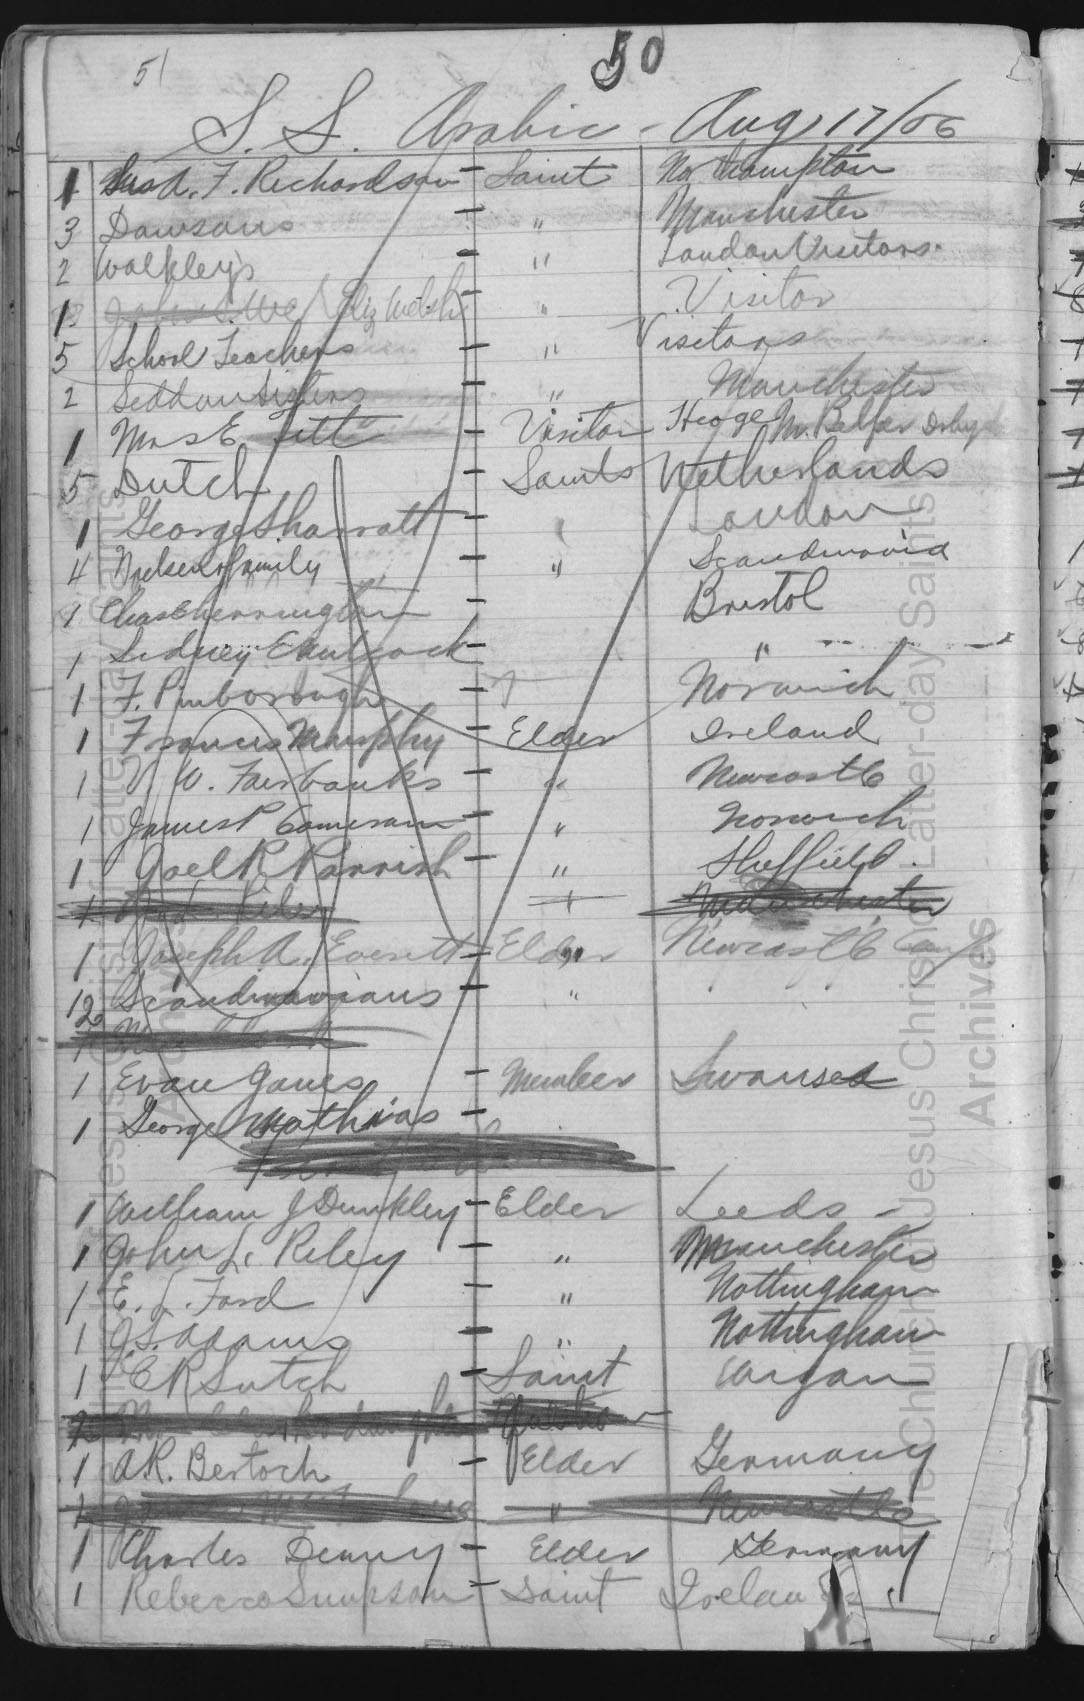 51
50
S. S. Arabic - Aug 17/06
1 A. F. Richardson - Saint Northampton
3 Dawsons - " Manchester
2 Walkleys - " London Visitors.
1 Eliz Welsh - " Visitor
5 School Teachers - " Visitors
2 Seddon Sisters - " Manchester
1 Mrs E Titt - Visitor Heage Nr. Belper Derby
5 Dutch - Saints Netherlands
1 George Sharratt - London
4 Nielsen family - " Scandinavia
1 Chas Cherrington - Bristol
1 Sidney E - "
1 F. Pinborough - Norwich
1 Francis Murphy - Elder Ireland
1 V. W. Fairbanks - " Newcastle
1 James P Cameron - " Norwich
1 Joel R Parrish - " Sheffield.
1 Riley Manchester
1 Joseph A. Everett - Elder Newcastle
12 Scandinavians - "
1 Evan Jones - Member Swansea
1 George Mathias -
1 William J Dunkley - Elder Leeds -
1 John L. Riley - " Manchester
1 E. L. Ford - " Nottingham
1 J. S. Adams - " Nottingham
1 E R Sutch - Saint Wigan
2
1 A R. Bertoch - Elder Germany
1 - " Newcastle
1 Charles Denny - Elder Germany
1 Rebecca Simpson - Saint Ireland
The Church of Jesus Christ of Latter-day Saints
Archives